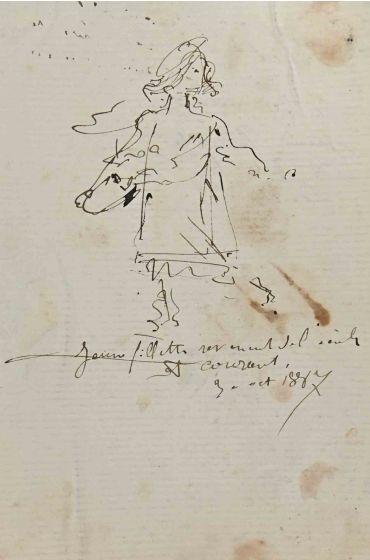 Jeune fillette revenant de l'école
et courant,
3 oct 1887